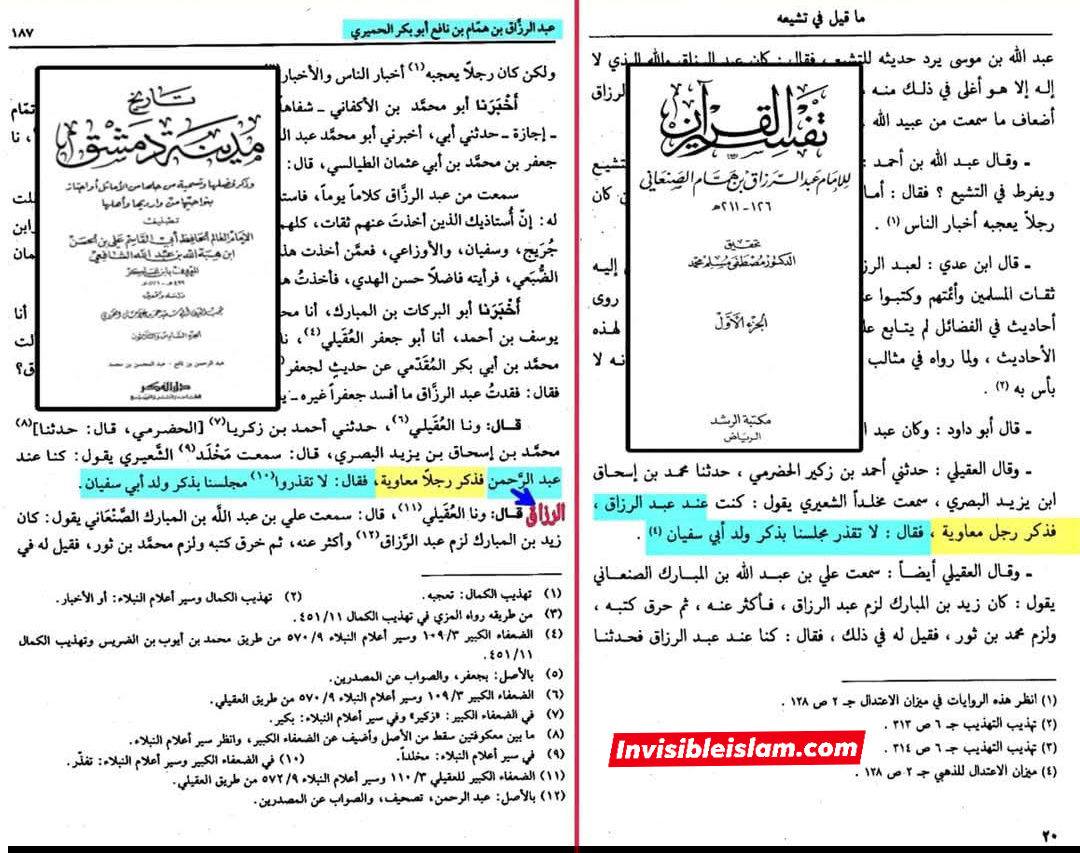 ما قيل في تشيعه
عبد الله بن موسى يرد حديثه للتشيع ، فقال : كان عبد الرزاق والله الذي لا
إله إلا هو أغلى في ذلك منه
الرزاق
أضعاف ما سمعت من عبيد الله .
ـ وقال عبد الله بن أحمد :
يتشيع
ويفرط في التشيع ؟ فقال : أما
كان
رجلاً يعجبه أخبار الناس (١) .
ـ قال ابن عدي : لعبد الرز
إليه
ثقات المسلمين وأئمتهم وكتبوا ع
روى
أحاديث في الفضائل لم يتابع عل
لهذه
الأحاديث ، ولما رواه في مثالب
نه لا
بأس به (٢) .
ـ قال أبو داود : وكان عبد ال
ـ وقال العقيلي : حدثني أحمد بن زكير الحضرمي ، حدثنا محمد بن إسحاق
ابن يزيد البصري ، سمعت مخلداً الشعيري يقول : كنت عند عبد الرزاق ،
فذكر رجل معاوية ، فقال : لا تقذر مجلسنا بذكر ولد أبي سفيان (٤) .
ـ وقال العقيلي أيضاً : سمعت علي بن عبد الله بن المبارك الصنعاني
يقول : كان زيد بن المبارك لزم عبد الرزاق ، فأكثر عنه ، ثم حرق كتبه ،
ولزم محمد بن ثور ، فقيل له في ذلك ، فقال : كنا عند عبد الرزاق فحدثنا
(١) انظر هذه الروايات في ميزان الاعتدال جـ ٢ ص ١٢٨ .
(٢) تهذيب التهذيب جـ ٦ ص ٣١٣ .
(٣) تهذيب التهذيب جـ ٦ ص ٣١٤ .
(٤) ميزان الاعتدال للذهبي جـ ٢ ص ١٢٨ .
٢٠
تفسير القرآن
للإمام عبد الرزاق بن همام الصنعاني
١٢٦ - ٢١١ هـ
تحقيق
الدكتور مصطفى مسلم محمد
الجزء الأول
مكتبة الرشد
الرياض
Invisibleislam.com
عبد الرزّاق بن همّام بن نافع أبو بكر الحميري
١٨٧
ولكن كان رجلاً يعجبه(١) أخبار الناس والأخبار
أخْبَرَنا أبو محمَّد بن الأكفاني ـ شفاهاً
تمّام
ـ إجازة ـ حدثني أبي، أخبرني أبو محمَّد عبد ال
، نا
جعفر بن محمَّد بن أبي عثمان الطيالسي، قال:
سمعت من عبد الرزَّاق كلاماً يوماً، فاستد
لت
له: إنّ أُستاذيك الذين أخذتَ عنهم ثقات، كلهم
ابن
جُرَيج، وسفيان، والأوزاعي، فعمَّن أخذت هذا
مان
الضُّبَعي، فرأيته فاضلاً حسن الهدي، فأخذتُ ه
أخْبَرَنا أبو البركات بن المبارك، أنا محم
أنا
يوسف بن أحمد، أنا أبو جعفر العُقَيلي(٤)، نا
لت
محمَّد بن أبي بكر المُقَدّمي عن حديثٍ لجعفر
ق؟
فقال: فقدتُ عبد الرزَّاق ما أفسد جعفراً غيره ـ
قال: ونا العُقَيلي(٦)، حدثني أحمد بن زكريا(٧) [الحضرمي، قال: حدثنا](٨)
محمَّد بن إسحاق بن يزيد البصري، قال: سمعت مَخْلَد(٩) الشَّعيري يقول: كنا عند
عبد الرَّحمن فذكر رجلاً معاوية، فقال: لا تقذروا(١٠) مجلسنا بذكر ولد أبي سفيان.
الرزاق
قال: ونا العُقَيلي(١١)، قال: سمعت علي بن عبد اللّه بن المبارك الصَّنْعَاني يقول: كان
زيد بن المبارك لزم عبد الرَّزَّاق(١٢) وأكثر عنه، ثم خرق كتبه ولزم محمَّد بن ثور، فقيل له في
(١) تهذيب الكمال: تعجبه. (٢) تهذيب الكمال وسير أعلام النبلاء: أو الأخبار.
(٣) من طريقه رواه المزي في تهذيب الكمال ٤٥١/١١.
(٤) الضعفاء الكبير ١٠٩/٣ وسير أعلام النبلاء ٥٧٠/٩ من طريق محمد بن أيوب بن الضريس وتهذيب الكمال
٤٥١/١١.
(٥) بالأصل: بجعفر، والصواب عن المصدرين.
(٦) الضعفاء الكبير ١٠٩/٣ وسير أعلام النبلاء ٥٧٠/٩ من طريق العقيلي.
(٧) في الضعفاء الكبير: «زكير» وفي سير أعلام النبلاء: بكير.
(٨) ما بين معكوفتين سقط من الأصل وأضيف عن الضعفاء الكبير، وانظر سير أعلام النبلاء.
(٩) في سير أعلام النبلاء: مخلداً. (١٠) في الضعفاء الكبير وسير أعلام النبلاء: تقذّر.
(١١) الضعفاء الكبير للعقيلي ١١٠/٣ وسير أعلام النبلاء ٥٧٢/٩ من طريق العقيلي.
(١٢) بالأصل: عبد الرحمن، تصحيف، والصواب عن المصدرين.
تاريخ
مدينة دمشق
وذكر فضلها وتسمية من حلها من الأماثل أو اجتاز
بنواحيها من وارديها وأهلها
تصنيف
الإمام العالم الحافظ أبي القاسم علي بن الحسن
ابن هبة الله بن عبد الله الشافعي
المعروف بابن عساكر
٤٩٩ هـ - ٥٧١ هـ
دراسة وتحقيق
الجزء السادس والثلاثون
عبد الرحمن بن نافع - عبد المحسن بن محمد
دار الفكر